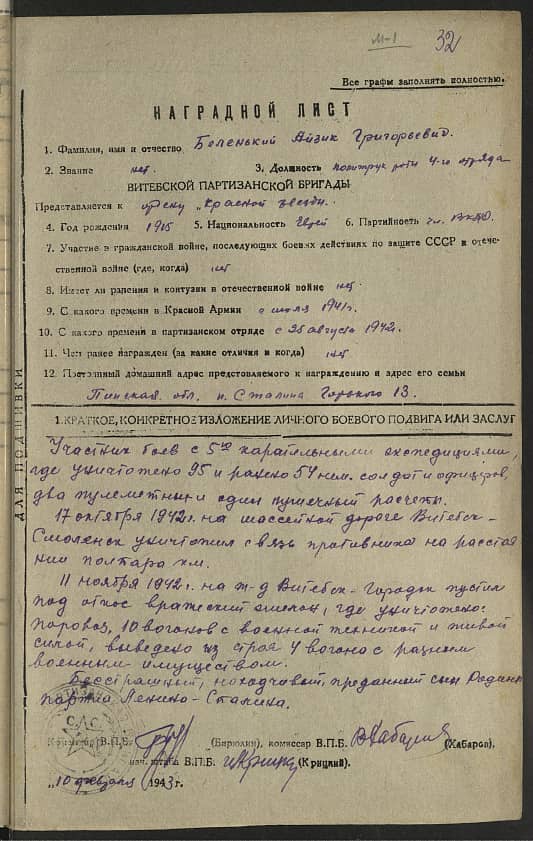 М-1
32
Все графы заполнять полностью.
НАГРАДНОЙ ЛИСТ
1. Фамилия, имя и отчество Беленький Айзик Григорьевич.
2. Звание нет 3. Должность политрук роты 4-го отряда
ВИТЕБСКОЙ ПАРТИЗАНСКОЙ БРИГАДЫ
Представляется к ордену "Красной звезды".
4. Год рождения 1915 5. Национальность Еврей 6. Партийность чл. ВКП(б)
7. Участие в гражданской войне, последующих боевых действиях по защите СССР и отече-
ственной войне (где, когда) нет
8. Имеет ли ранения и контузии в отечественной войне нет.
9. С какого времени в Красной Армии с июля 1941г.
10. С какого времени в партизанском отряде с 25 августа 1942г.
11. Чем ранее награжден (за какие отличия и когда) нет
12. Постоянный домашний адрес представляемого к награждению и адрес его семьи
Пинская обл. п. Сталина Горького 13.
1. КРАТКОЕ, КОНКРЕТНОЕ ИЗЛОЖЕНИЕ ЛИЧНОГО БОЕВОГО ПОДВИГА ИЛИ ЗАСЛУГ
Участник боев с 5ью карательными экспедициями,
где уничтожено 95 и ранено 54 нем. солдат и офицеров,
два пулеметных и один пушечный расчеты.
17 октября 1942г. на шоссейной дороге Витебск-
Смоленск уничтожил связь противника на расстоя
нии полтара км.
11 ноября 1942г. на ж-д Витебск-Городок пустил
под откос вражеский эшелон, где уничтожено:
паровоз, 10 вагонов с военной техникой и живой
силой, выведено из строя 4 вагона с разным
военным имуществом.
Бесстрашный, находчивый, преданный сын Родины
партии Ленина-Сталина.
Командир В.П.Б. (Бирюлин), комиссар В.П.Б. Хабаров (Хабаров).
нач. штаба В.П.Б. (Крицкий).
"10 февраля 1943г.
ДЛЯ ПОДШИВКИ